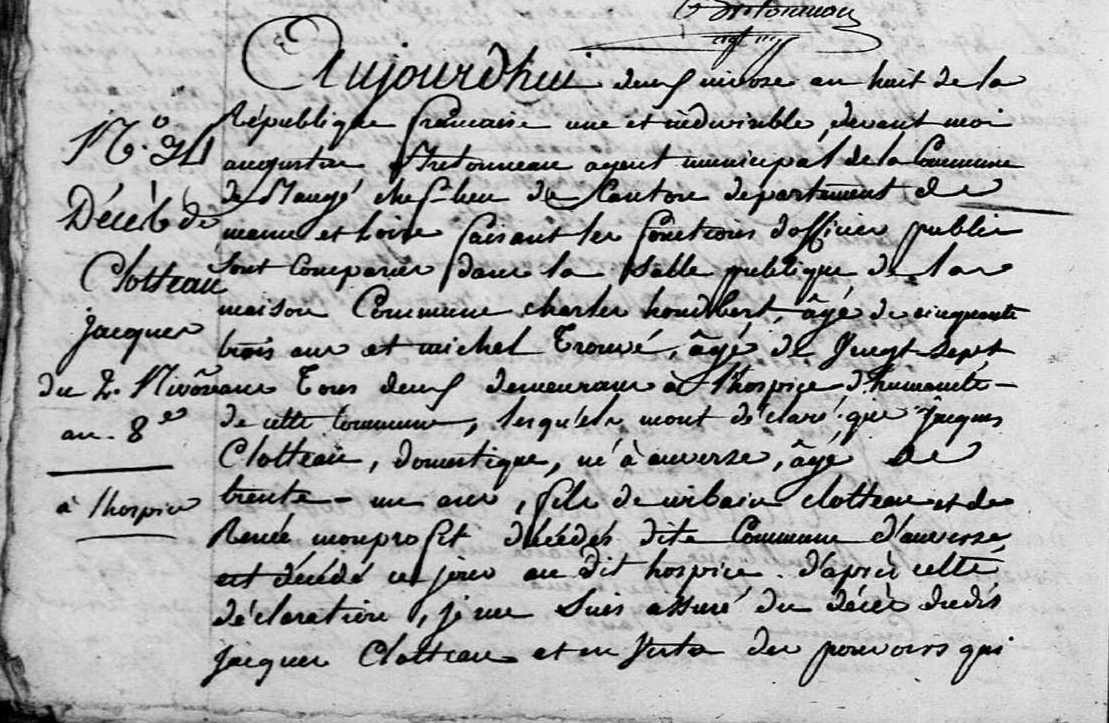 Bretonneau
agt mpal
Aujourdhui deux nivose an huit de la
République francaise une et indivisible, devant moi
augustin Bretonneau agent municipal de la Commune
de Baugé chef-lieu de Canton departement de
maine et Loire faisant les fonctions d'officier public
sont Comparus dans la salle publique de la
maison Commune charles houdbert, âgé de cinquante
trois ans et michel Trouvé, âgé de Vingt-sept
ans Tous deux demeurans à l'hospice d'humanité
de cette Commune, lesquels mont déclaré que Jacques
Clotteau, domestique, né à auverse, âgé de
trente-un ans, fils de urbain Clotteau et de
Renée monprofit décédés dite Commune d'auverse
est décédé ce jour au dit hospice. d'après cette
déclaration, je me suis assuré du décès dudit
jacques Clotteau et en Vertu des pouvoirs qui
N.o 34
Décès de
Clotteau
jacques
du 2. Nivôse
an. 8e
à lhospice